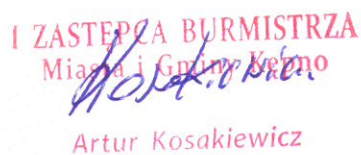 I ZASTĘPCA BURMISTRZA
Miasta i Gminy Kępno
Kosakiewicz
Artur Kosakiewicz